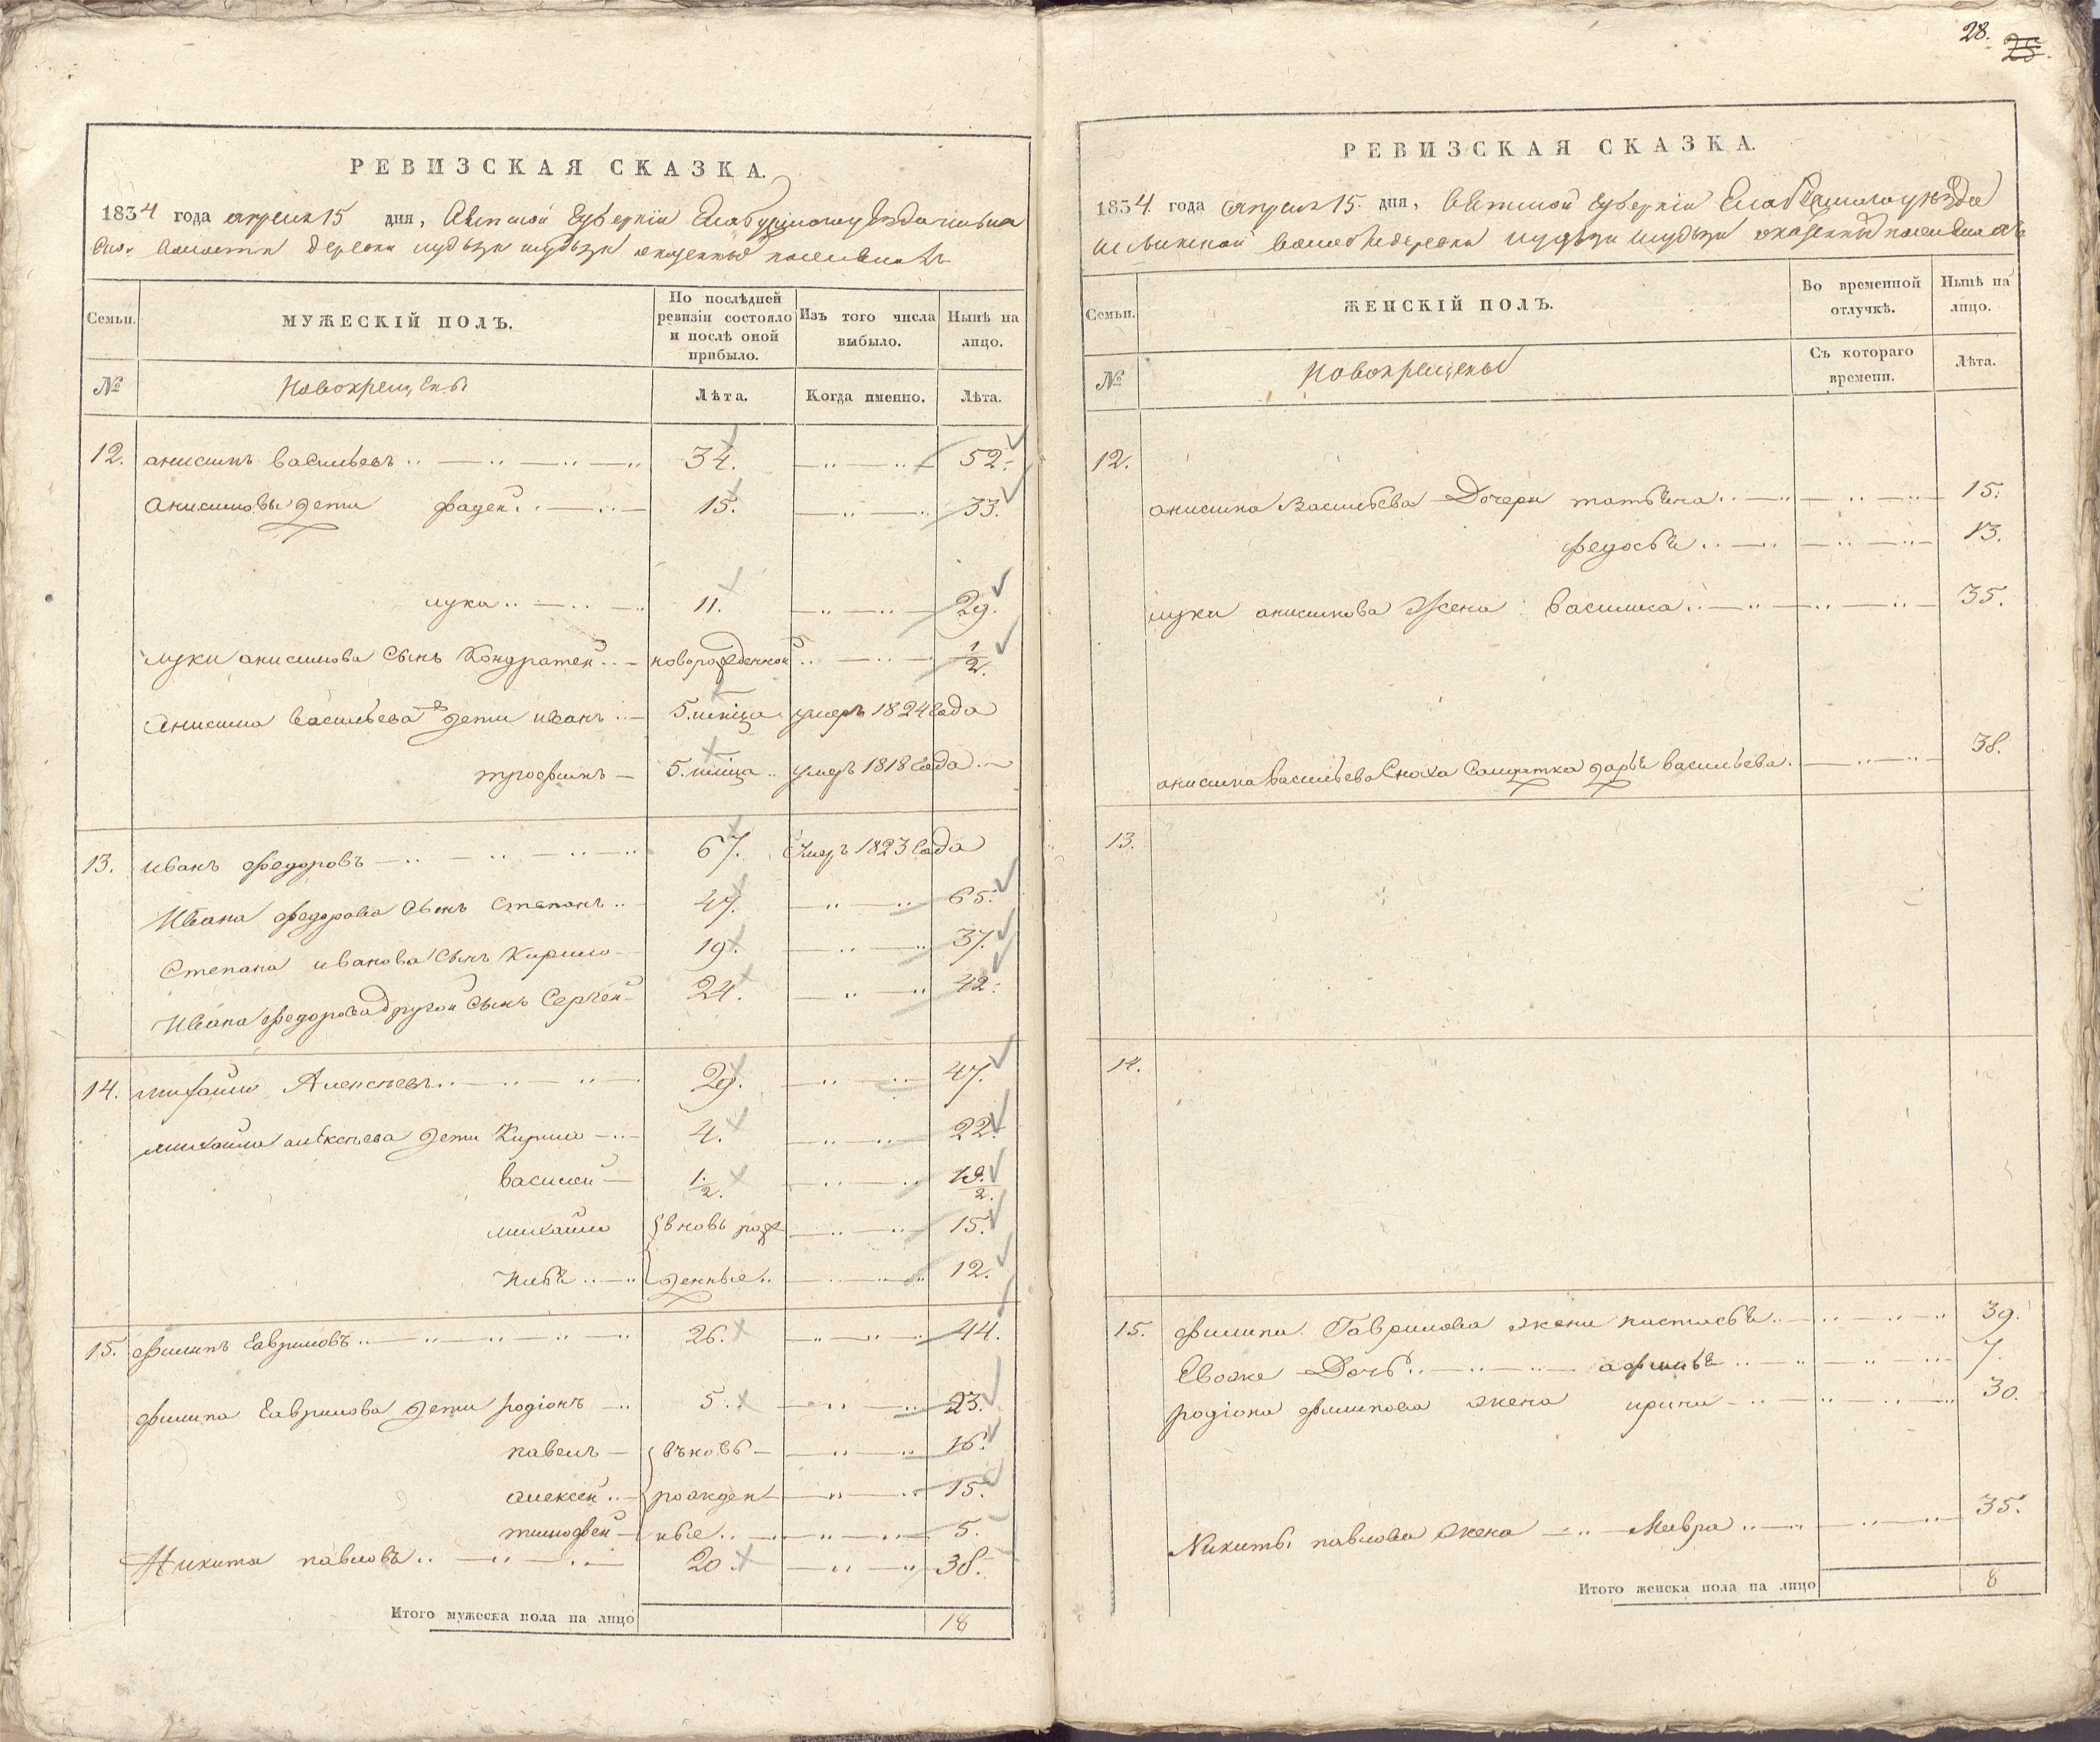 28.
25.
РЕВИЗСКАЯ СКАЗКА.
1834 года апреля 15 дня, Вятской Губернiи Елабуцкого уезда
волости деревни казенныхъ поселянъ
Семьи.
МУЖЕСКIЙ ПОЛЪ.
По послѣдней ревизiи состояло и послѣ оной прибыло.
Изъ того числа выбыло.
Нынѣ на лицо.
№
Новокрещены
Лѣта.
Когда именно.
Лѣта.
12. анисимъ васильевъ 34. 52.
Анисимовы дети фадей 15. 33.
лука 11. 29.
луки анисимова сынъ Кондратей новорожденной 1/2.
Анисима васильева дети иванъ 5. умеръ 1824 года
трофимъ 5. умеръ 1818 года
13. иванъ федоровъ 67. умеръ 1823 года
Ивана федорова сынъ степанъ 47. 65.
Степана иванова сынъ Кирило 19. 37.
Ивана федорова другой сынъ Сергей 24. 42.
14. михайло Алексѣевъ 29. 47.
михайла алексѣева дети Кирило 4. 22.
василей 1/2. 19/2.
михайло вновь рож 15.
денные 12.
15. филипъ Гавриловъ 26. 44.
филипа Гаврилова дети родiонъ 5. 23.
павелъ вновь 16.
алексей рожден 15.
тимофей ные 5.
Никита павловъ 20. 38.
Итого мужеска пола на лицо 18
РЕВИЗСКАЯ СКАЗКА.
1834 года апреля 15. дня, Вятской Губернiи Елабуцкого уезда
волости деревни казенныхъ поселянъ
Семьи.
ЖЕНСКIЙ ПОЛЪ.
Во временной отлучкѣ.
Нынѣ на лицо.
№
Новокрещены
Съ котораго времени.
Лѣта.
12.
анисима Васильева Дочери татьяна 15.
федосья 13.
луки анисимова жена василиса 35.
анисима васильева сноха солдатка дарья васильева 38.
13.
14.
15. филипа Гаврилова жена настасья 39.
Евоже Дочь афимья 7.
родiона филипова жена ирина 30.
Никиты павлова жена Мавра 35.
Итого женска пола на лицо 8